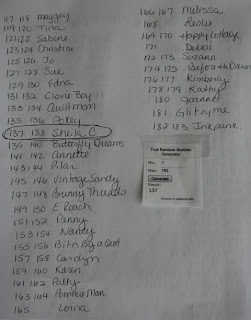 117 118 Maggey
119 120 Tina
121 122 Sabine
123 124 Christine
125 126 Jo
127 128 Sue
129 130 Edna
131 132 Clovia Boy
133 134 Quiltmom
135 136 Abbey
137 138 Sheila C
139 140 Butterfly Dreams
141 142 Annette
143 144 Pilar
145 146 Vintage Sandy
147 148 Bunny Threads
149 150 E Roach
151 152 Penny
153 154 Nancy
155 156 Bitn By a Quilt
157 158 Carolyn
159 160 Karen
161 162 Patty
163 164 Pamina Mom
165 Lorna
166 167 Melissa
168 Leslie
169 170 Happy Cottage
171 Debbi
172 173 Suzana
174 175 Before the Dawn
176 177 Kimberly
178 179 Kathy
180 Joanne
181 Glitzyme
182 183 Inkpunk
True Random Number Generator
Min: 1
Max: 183
Generate
Result:
137